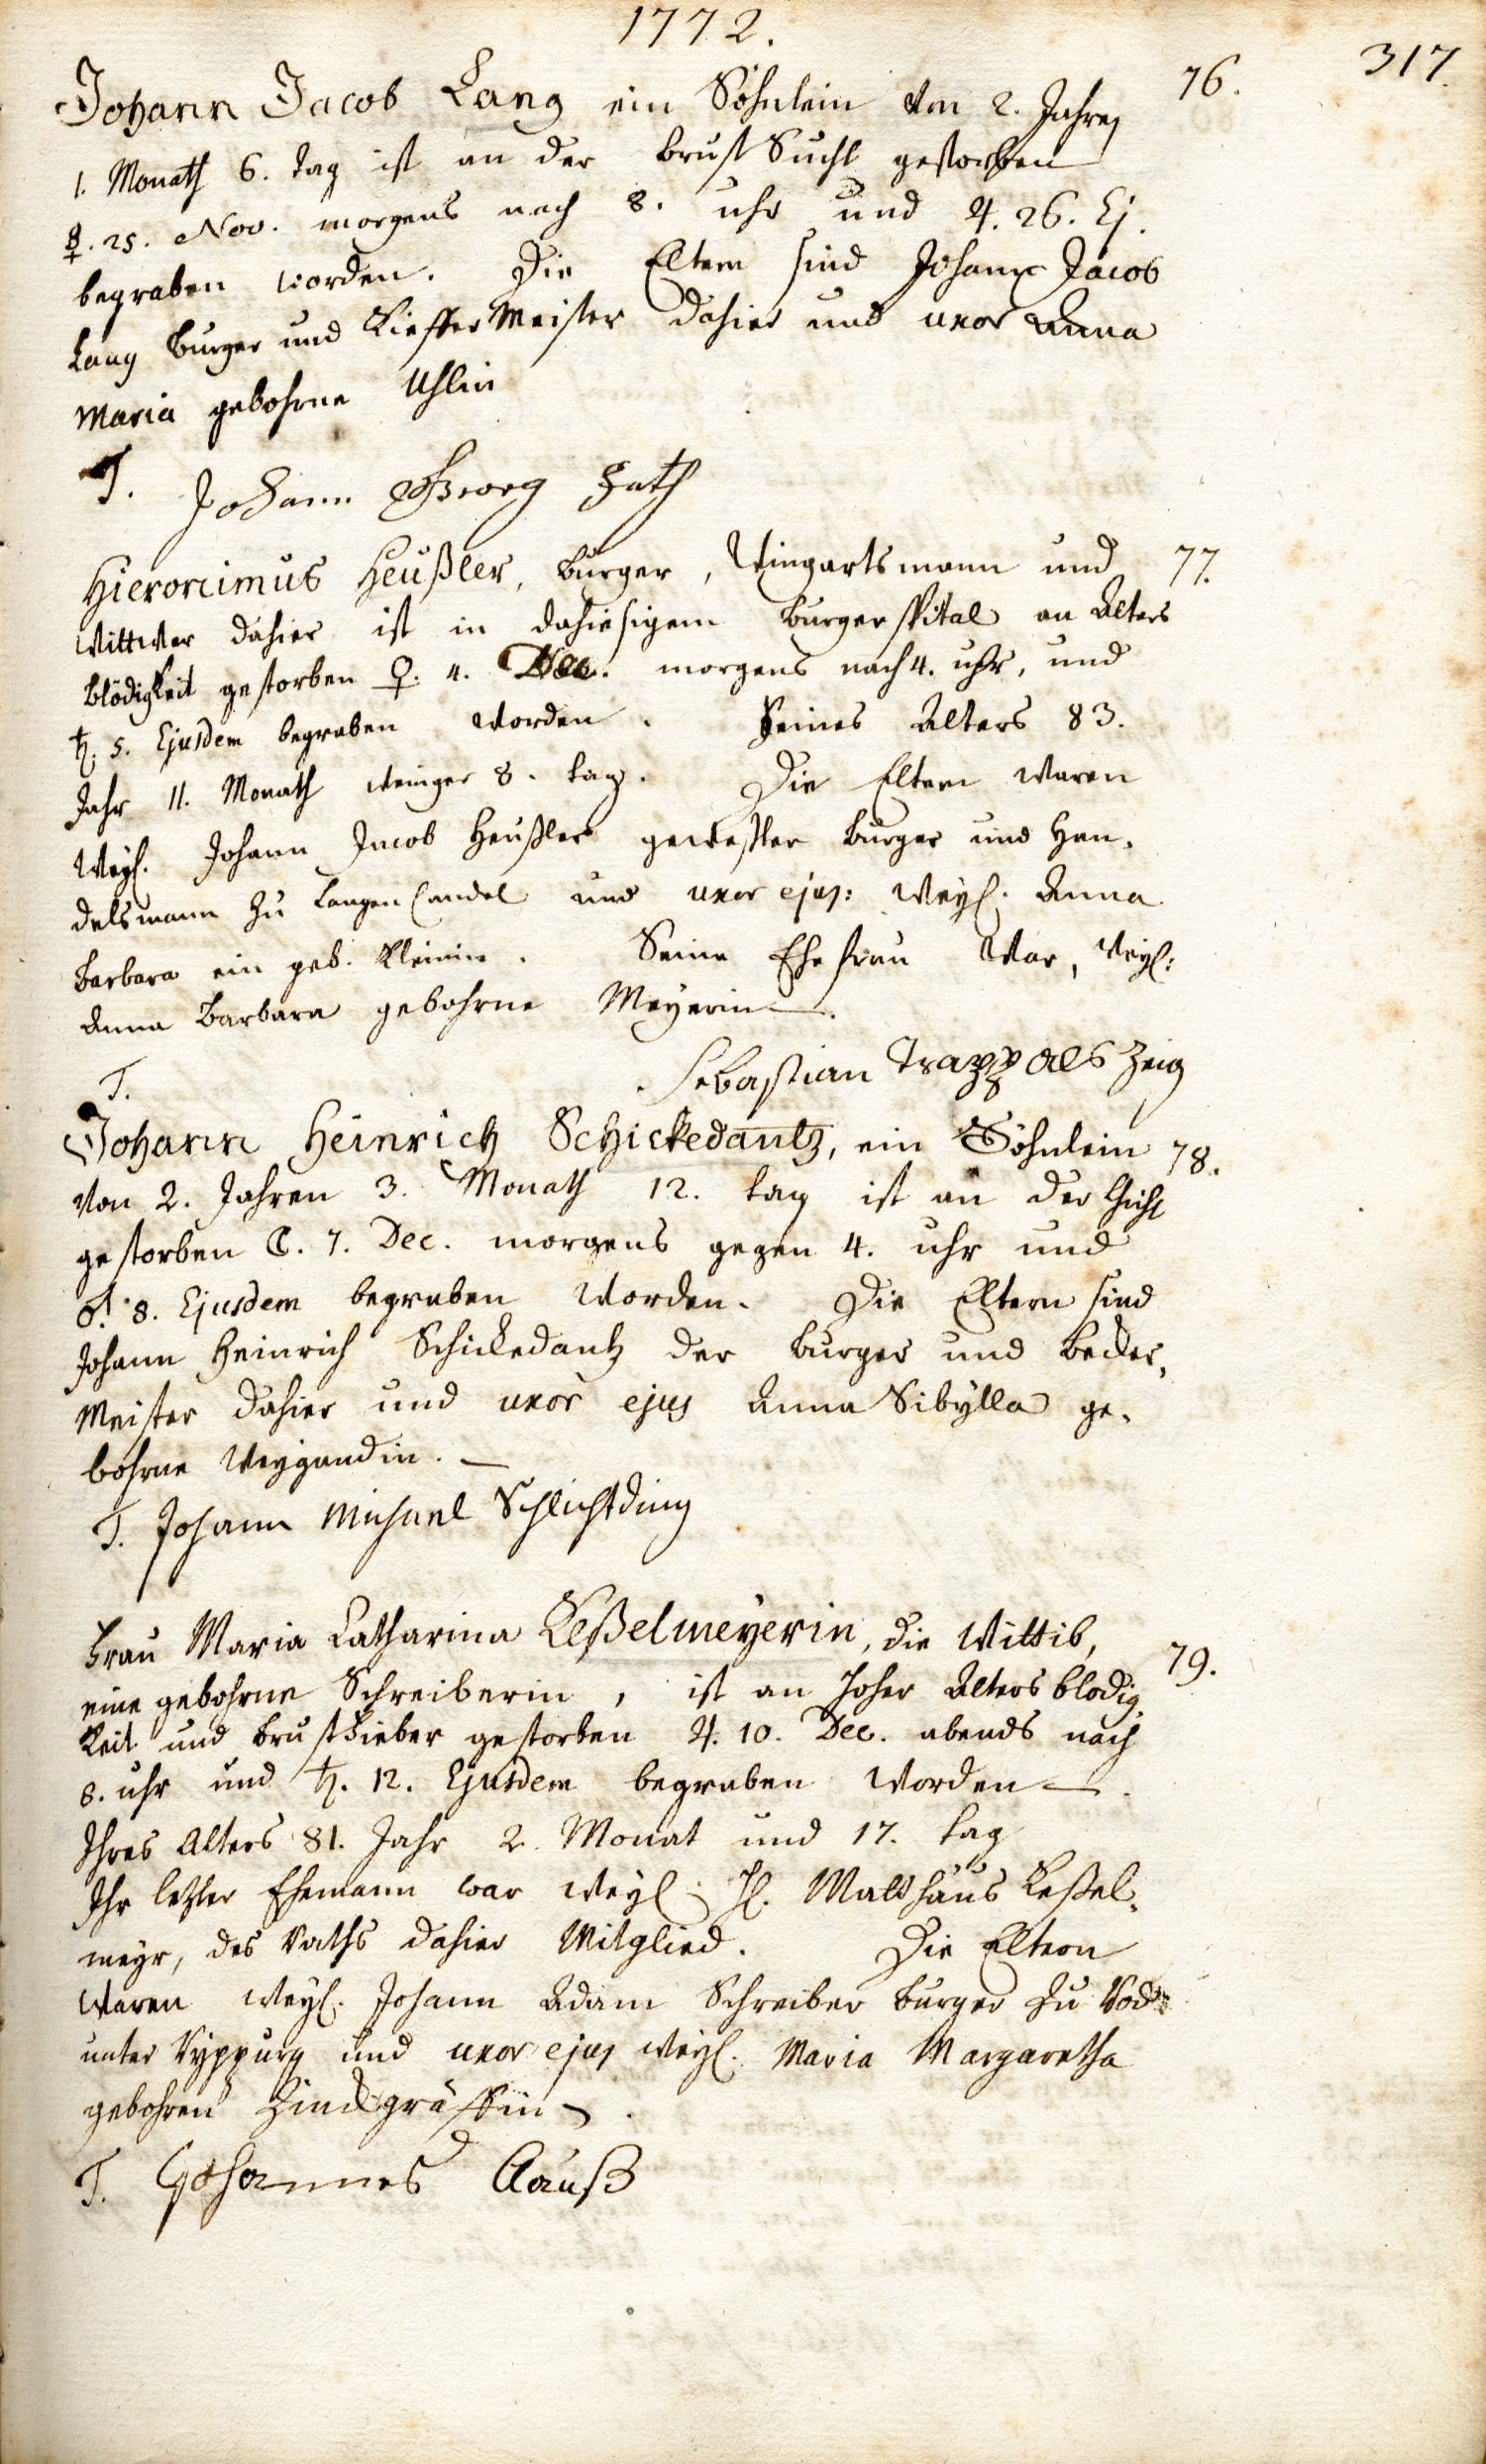 1772.
317.
76.
Johann Jacob Lang ein Söhnlein von 2. Jahren
1. Monath 6. tag ist an der brust Sucht gestorben
☿. 25. Nov. morgens nach 8. uhr und ♃. 26. Ej.
begraben worden. Die Eltern sind Johann Jacob
Lang burger und Kieffer Meister dahier und uxor Anna
Maria gebohrne Uhlin
T. Johann Georg Hath
77.
Hieronimus Heußler, burger, Wingartsmann und
Wittwer dahier ist in dahiesigem burgerspital an Alters
blödigkeit gestorben ♀. 4. Dec. morgens nach 4. uhr, und
♄. 5. Ejusdem begraben worden. Seines Alters 83.
Jahr 11. Monath weniger 8. tag. Die Eltern waren
Weyl. Johann Jacob Heußler gewesster burger und Han-
delsmann zu Langen Candel und uxor ejus: weyl. Anna
Barbara ein geb. Kleinin. Seine Ehefrau war, weyl:
Anna Barbara gebohrne Meyerin.
T. Sebastian Trapp als Zeig
78.
Johann Heinrich Schickedantz, ein Söhnlein
von 2. Jahren 3. Monath 12. tag ist an der Gicht
gestorben ☾. 7. Dec. morgens gegen 4. uhr und
♂. 8. Ejusdem begraben worden. Die Eltern sind
Johann Heinrich Schickedantz der burger und becker-
Meister dahier und uxor ejus Anna Sibÿlla ge-
bohrne Weygandin.
T. Johann Michael Schlichtding
79.
Frau Maria Catharina Keßelmeÿerin, die Wittib,
eine gebohrne Schreiberin, ist an hoher Alters blodig
keit und brustfieber gestorben ♃. 10. Dec. abends nach
8. uhr und ♄. 12. Ejusdem begraben worden.
Ihres Alters 81. Jahr 2. Monat und 17. tag
Ihr letzter Ehemann war weyl. H. Matthäus Keßel-
meyr, des Raths dahier Mitglied. Die Eltern
waren weyl. Johann Adam Schreiber burger zu Rod
unter Ryppurg und uxor ejus weyl. Maria Margaretha
gebohren Zinckgräffin.
T. Johannes Clauß